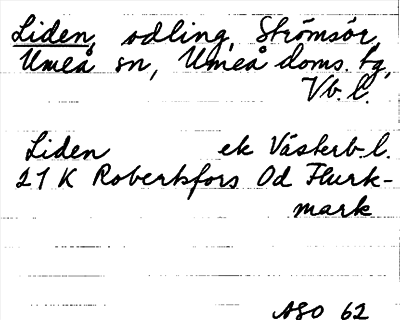 Liden, odling, Strömsör,
Umeå sn, Umeå doms. tg,
Vb. l.
Liden ek Västerb. l.
21 K Robertsfors Od Flurk-
mark
ASO 62